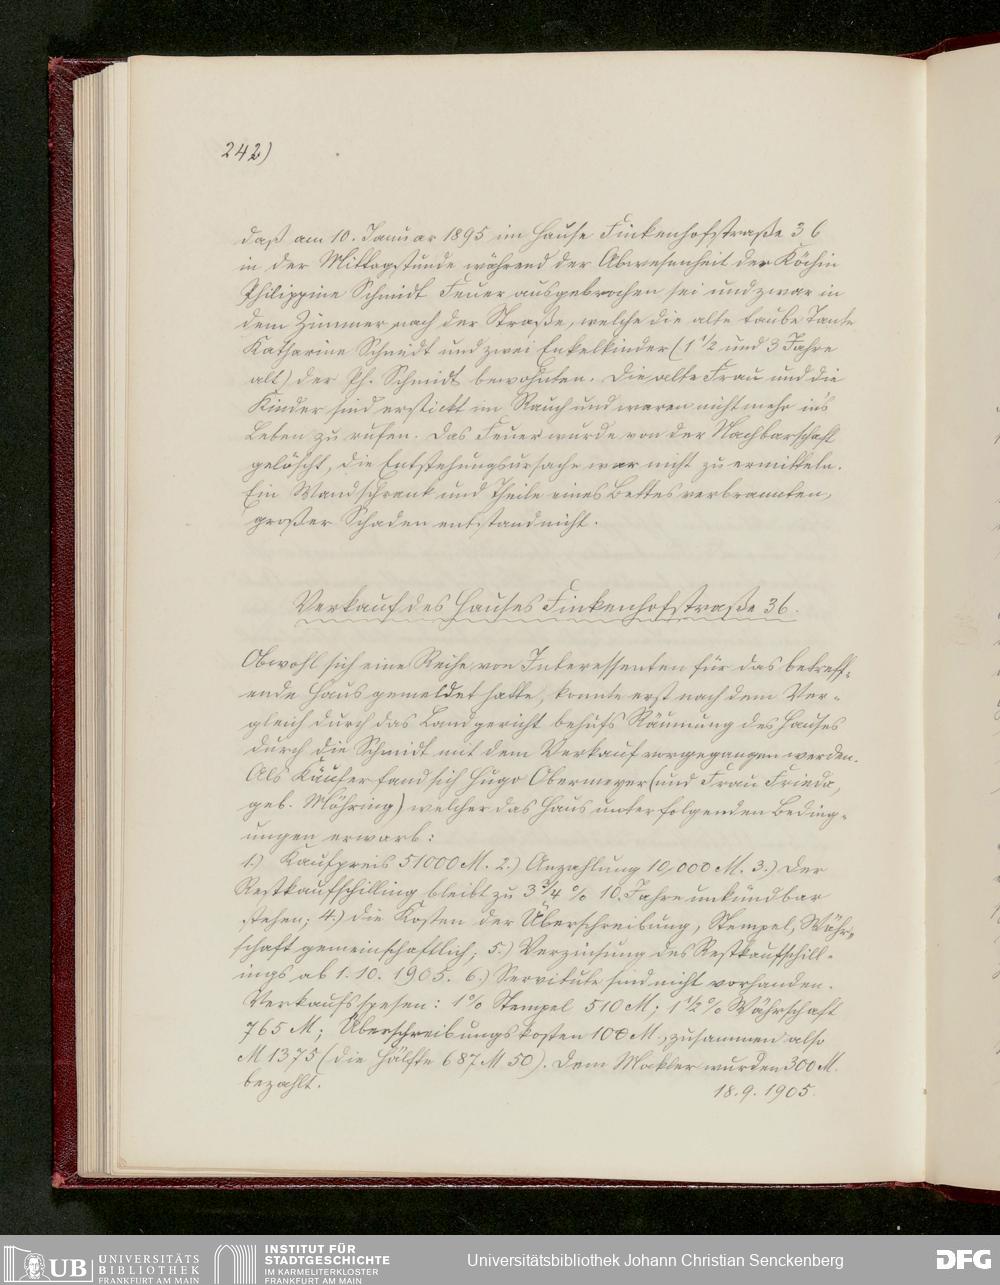 242)
daß am 10. Januar 1895 im Hause Finkenhofstraße 36
in der Mittagsstunde während der Abwesenheit der Köchin
Philippine Schmidt Feuer ausgebrochen sei und zwar in
dem Zimmer nach der Straße, welche die alte taube Tante
Katharine Schmidt und zwei Enkelkinder (1 1/2 und 3 Jahre
alt) der Ph. Schmidt bewohnten. Die alte Frau und die
Kinder sind erstickt im Rauch und waren nicht mehr in's
Leben zu rufen. Das Feuer wurde von der Nachbarschaft
gelöscht, die Entstehungsursache war nicht zu ermitteln.
Ein Wandschrank und Theile eines Bettes verbrannten,
großer Schaden entstand nicht.
Verkauf des Hauses Finkenhofstraße 36.
Obwohl sich eine Reihe von Interessenten für das betreff-
ende Haus gemeldet hatte, konnte erst nach dem Ver-
gleich durch das Landgericht behufs Räumung des Hauses
durch die Schmidt mit dem Verkauf vorgegangen werden.
Als Käufer fand sich Hugo Obermeyer (und Frau Frieda,
geb. Möhring) welcher das Haus unter folgenden Beding-
ungen erwarb:
1.) Kaufpreis 51000 M. 2.) Anzahlung 10,000 M. 3.) Der
Restkaufschilling bleibt zu 3 3/4 % 10. Jahre unkündbar
stehen; 4.) die Kosten der Überschreibung, Stempel, Währ-
schaft gemeinschaftlich; 5.) Verzinsung des Restkaufschill-
ings ab 1. 10. 1905. 6.) Servitute sind nicht vorhanden.
Verkaufsspesen: 1% Stempel 510 M; 1 1/2 % Währschaft
765 M; Überschreibungskosten 100 M., zusammen also
M 1375 (die Hälfte 687 M 50). Dem Makler wurden 300 M.
bezahlt.
18. 9. 1905.
UB UNIVERSITÄTS
BIBLIOTHEK
FRANKFURT AM MAIN
INSTITUT FÜR
STADTGESCHICHTE
IM KARMELITERKLOSTER
FRANKFURT AM MAIN
Universitätsbibliothek Johann Christian Senckenberg
DFG